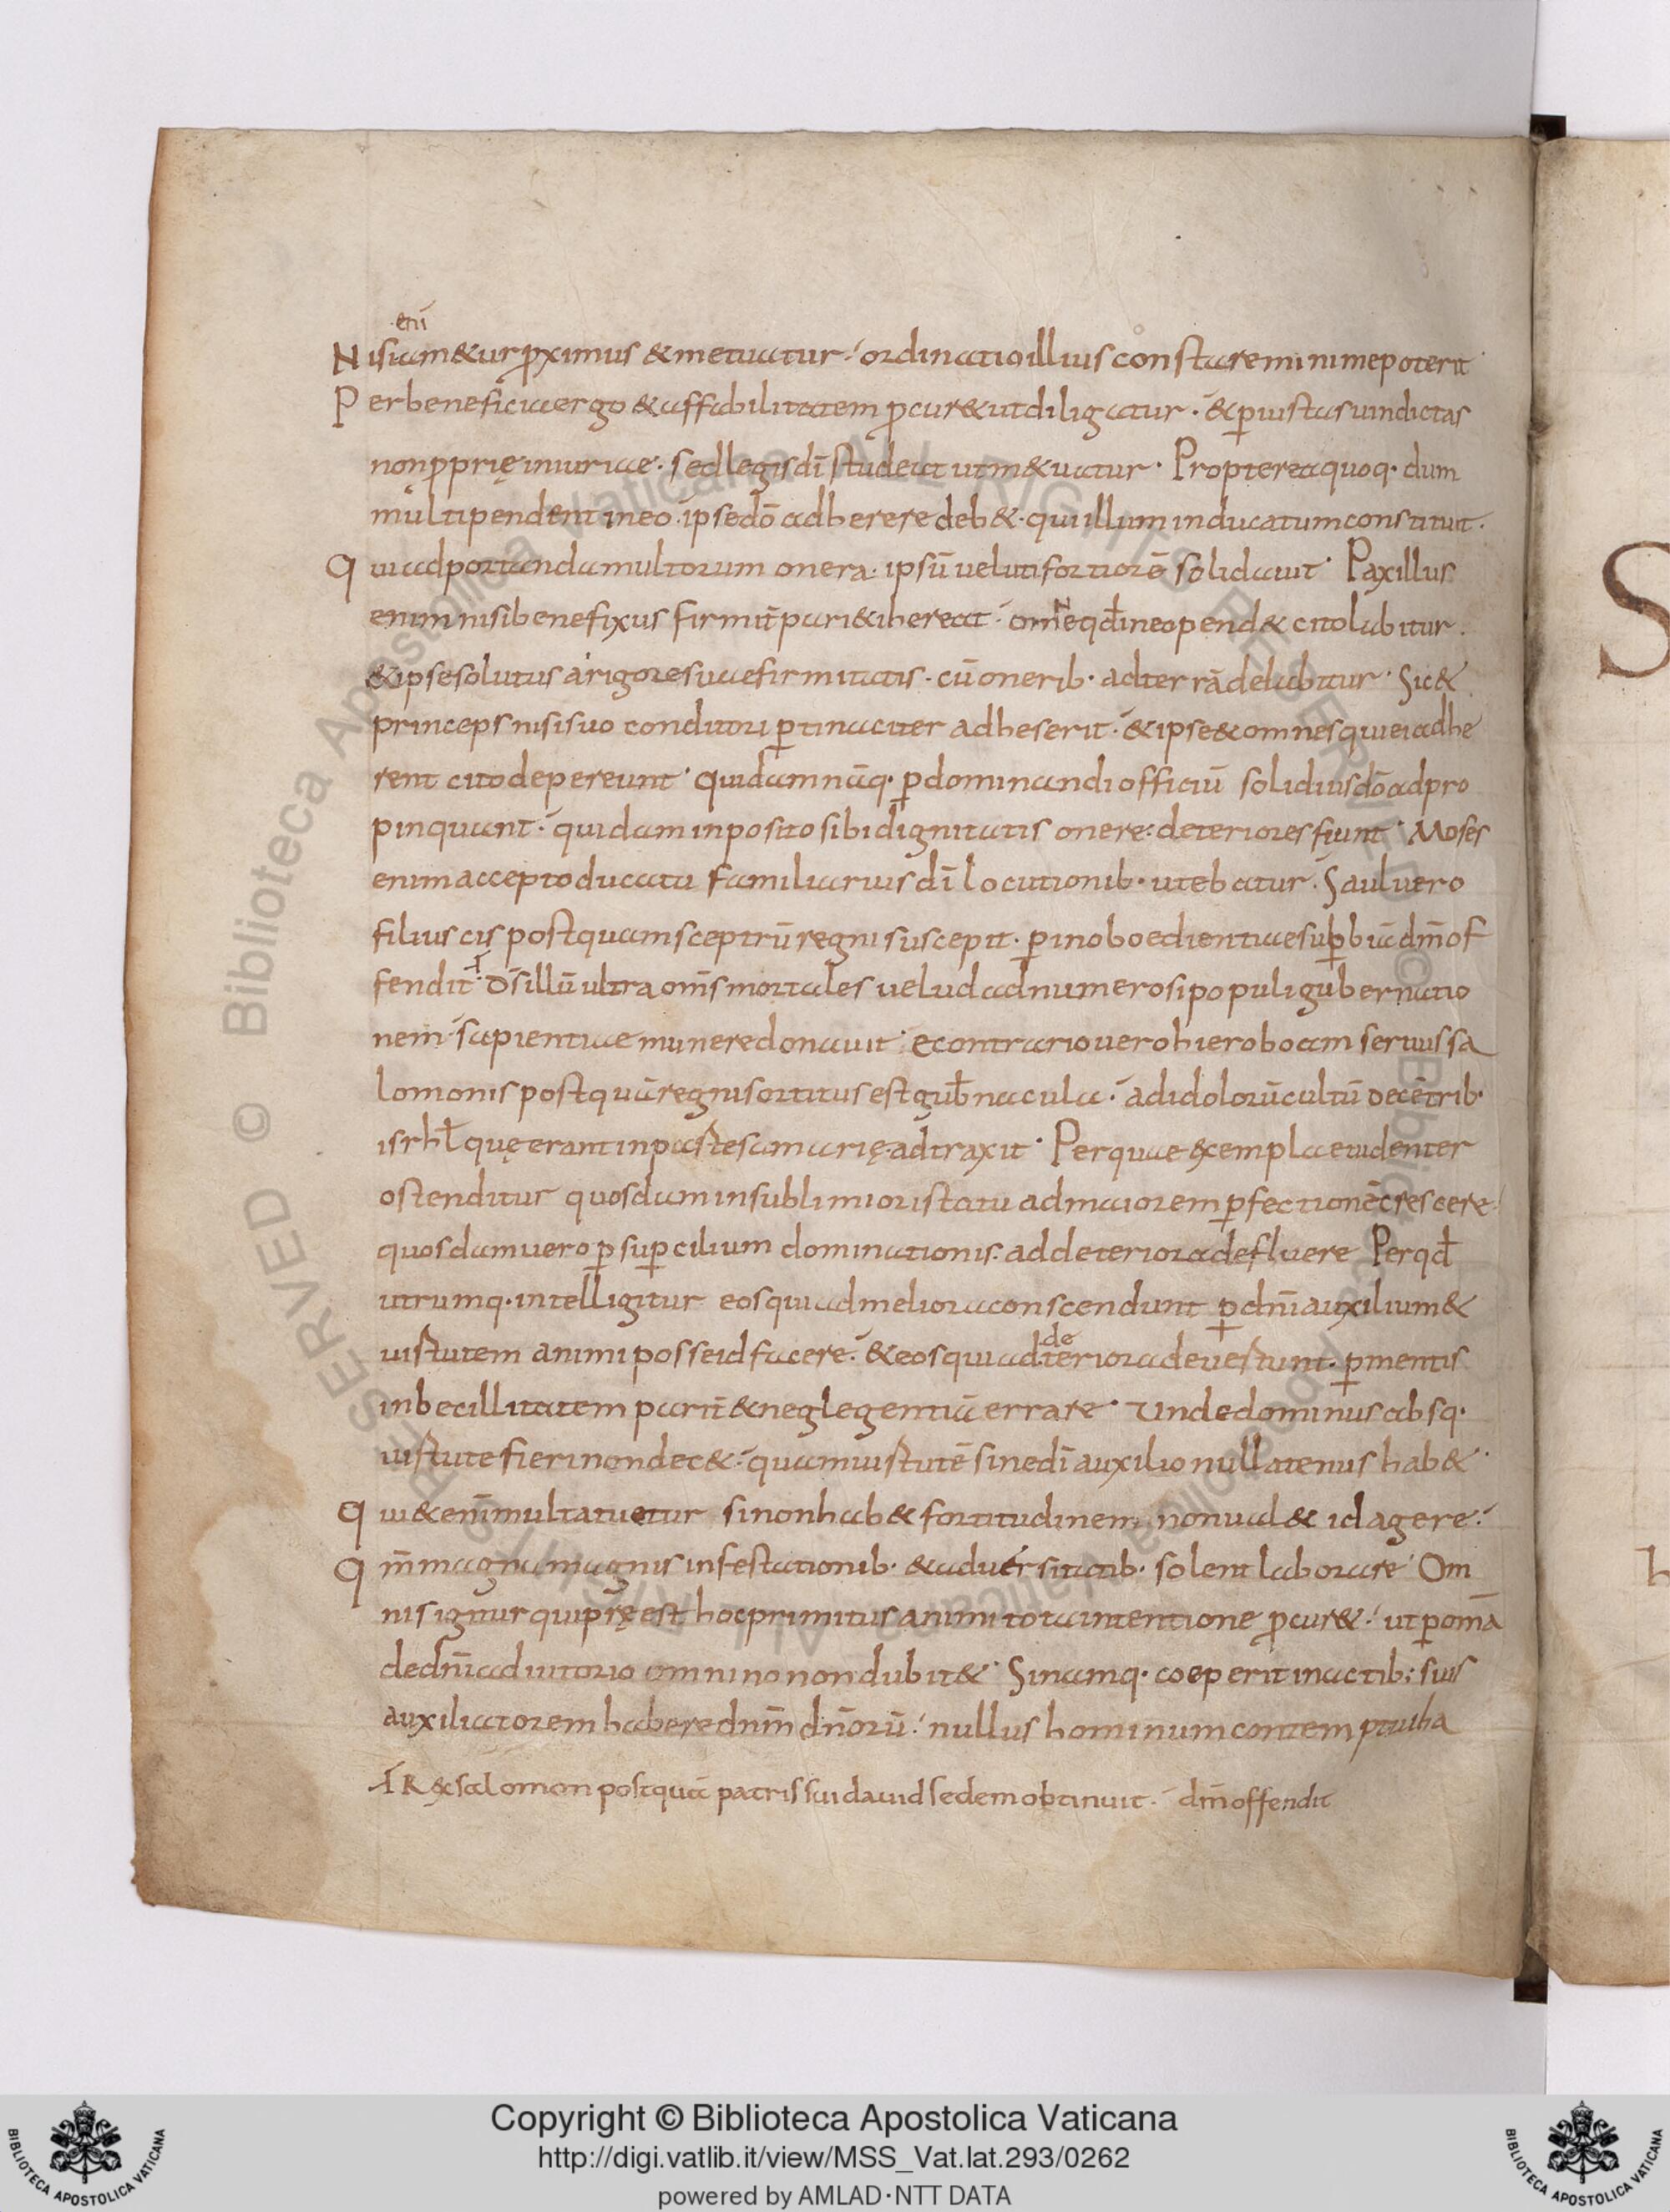 eni
Nisiam&ur ꝓximus &metuatur; ordinatio illius constare minime poterit
Per beneficia ergo & affabilitatem ꝓcur& ut diligatur · & ꝑ iustas uindictas
non ꝓprię iniuriae · sed legis dī studeat ut m&uatur · Propterea quoq· dum
multi pendent in eo · ipse dō adherere deb& · qui illum in ducatum constituit ·
Qui ad portanda multorum onera · ipsū uelut fortiorē solidauit · Paxillus
enim nisi bene fixus firmit̄ pari&i hereat · omne qd̄ in eo pend& cito labitur ·
& ipse solutus a rigore suae firmitatis · cū onerib· ad terrā delabitur · Sic &
princeps nisi suo conditori ꝑtinaciter adheserit · & ipse & omnes qui ei adhe
rent cito depereunt · Quidam nāq· ꝑ dominandi officiū solidius dō adpro
pinquant · quidam inposito sibi dignitatis onere · deteriores fiunt · Moses
enim accepto ducatu familiarius dī locutionib· utebatur · Saul uero
filius cis postquam sceptrū regni suscepit · ꝑ inoboedientiae suꝑbiā dm̄ of
fendit · Ds̄ illū ultra om̄s mortales uelud ad numerosi populi gubernatio
nem · sapientiae munere donauit · Econtrario uero hieroboam seruus sa
lomonis postquā regni sortitus est gub̄nacula · ad idolorū cultū decē trib·
isrhl̄ quę erant in parte samarię adtraxit · Per quae exempla euidenter
ostenditur quosdam in sublimiori statu ad maiorem ꝑfectionē crescere
quosdam uero ꝑ suꝑcilium dominationis · ad deteriora defluere Per qd̄
utrumq· intelligitur eos qui ad meliora conscendunt ꝑ dn̄i auxilium &
uirtutem animi posse id facere · & eos qui ad teriora deuertunt · ꝑ mentis
de
inbecillitatem parit̄ & neglegentiā errare · Unde dominus absq·
uirtute fieri non dec& · quam uirtutē sine dī auxilio nullatenus hab& ·
Qui&enim multa tuetur si non hab& fortitudinem non ual& id agere ·
Qm̄ magna magnis infestationib· & aduersitatib· solent laborare · Om
nis igitur qui pręest hoc primitus animi tota intentione ꝓcur& · ut ꝑ om̄a
de dn̄i adiutorio omnino non dubit& · Si namq· coeperit in actib: suis
auxiliatorem habere dnm̄ dn̄orū · nullus hominum contemptui ha
R&x salomon postquā patris sui dauid sedem obtinuit · dm̄ offendit
Copyright © Biblioteca Apostolica Vaticana
http://digi.vatlib.it/view/MSS_Vat.lat.293/0262
powered by AMLAD·NTT DATA
BIBLIOTECA APOSTOLICA VATICANA
BIBLIOTECA APOSTOLICA VATICANA